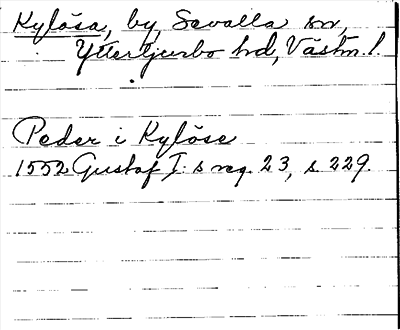 Kylåsa, by, Sevalla sn,
Yttertjurbo hd, Västm. l.
Peder i Kylåse
1552 Gustaf I:s reg. 23, s. 229.